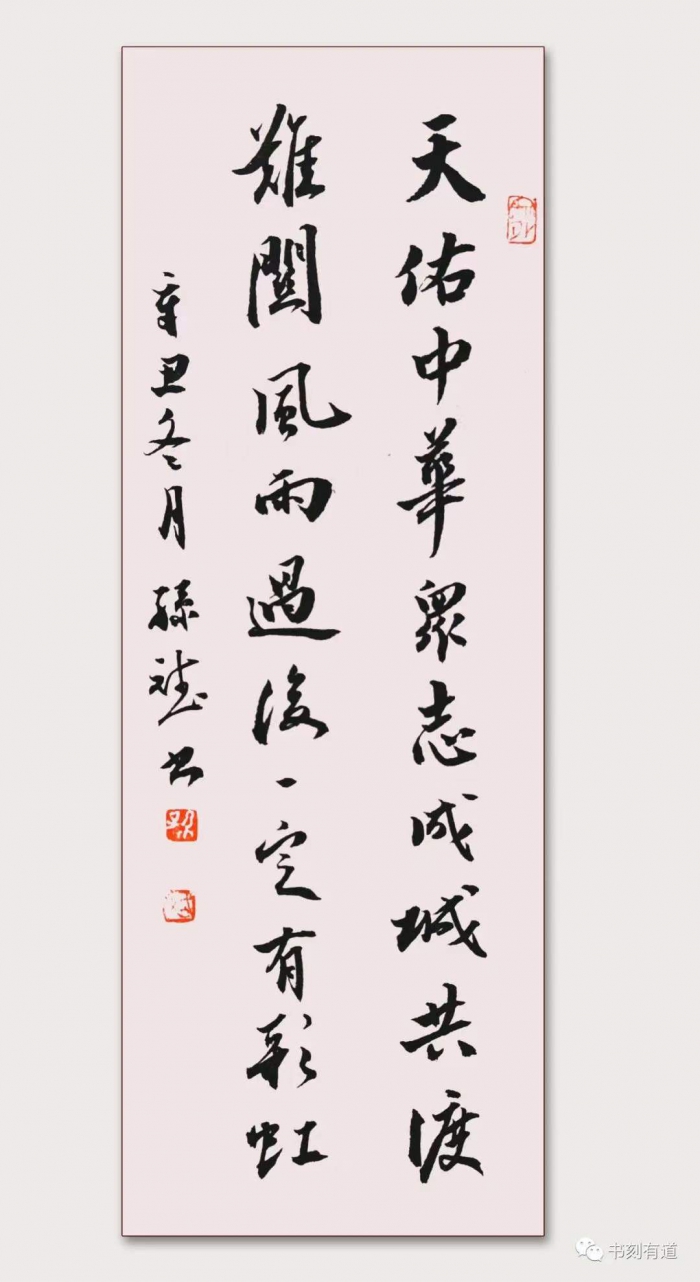 天佑中華眾志成城共渡
難關風雨過後一定有彩虹
辛丑冬月孫斌書
书刻有道